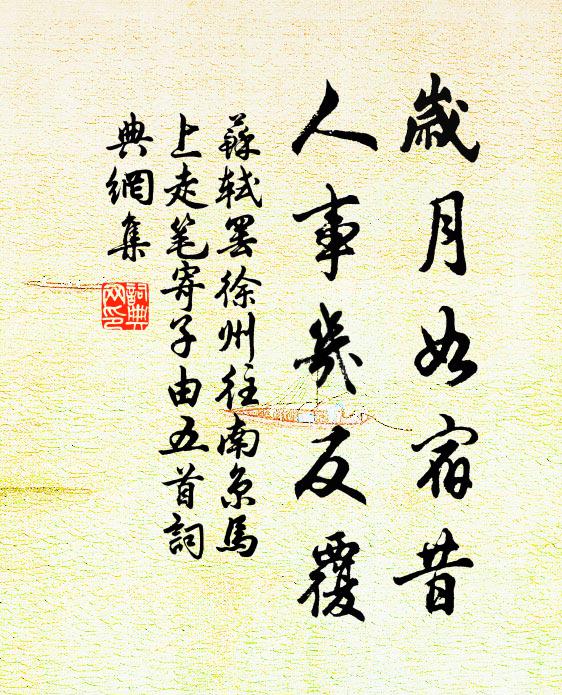 歲月如宿昔
人事幾反覆
蘇軾罢徐州往南京馬
上走笔寄子由五首詞
典網集
詞典
网印